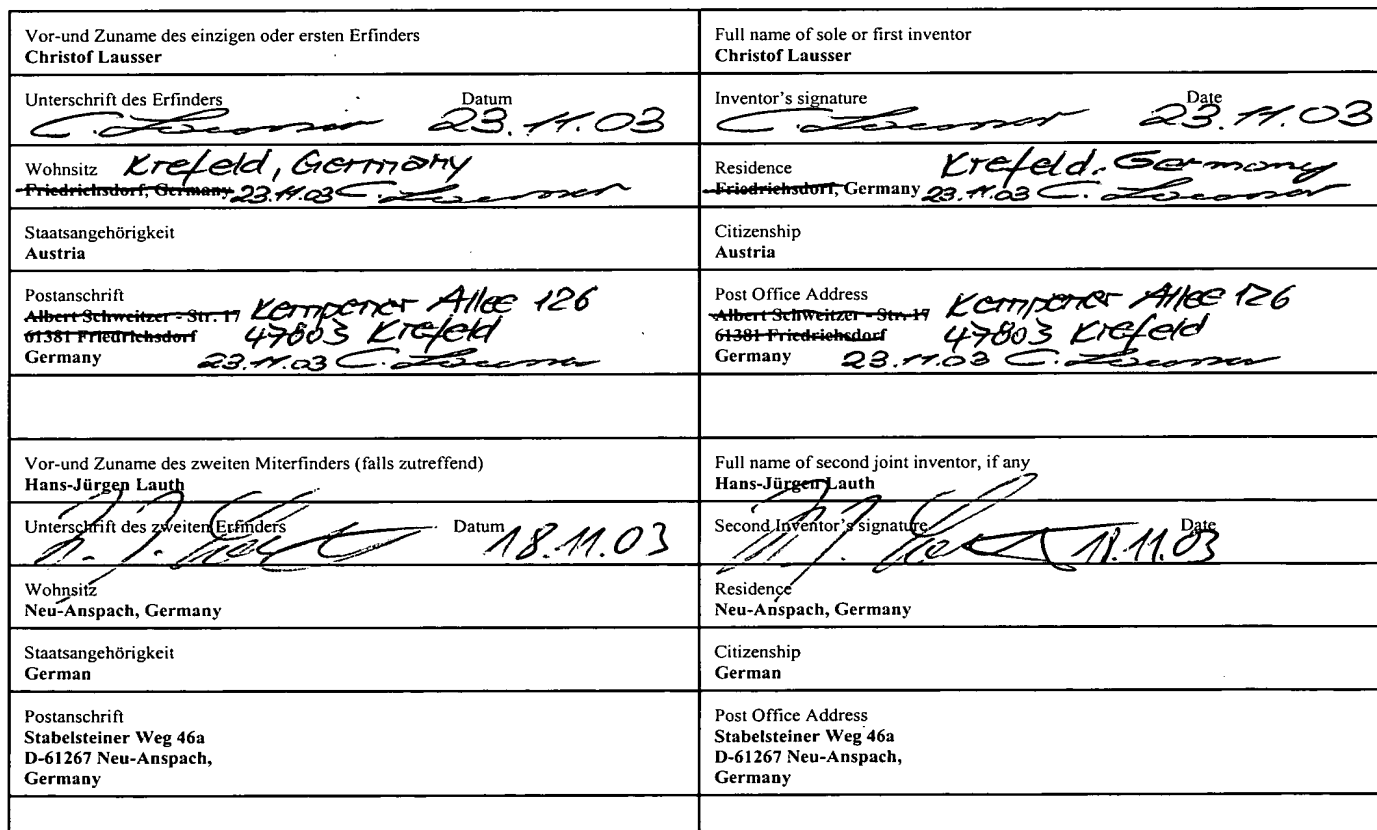 Vor-und Zuname des einzigen oder ersten Erfinders
Christof Lausser
Full name of sole or first inventor
Christof Lausser
Unterschrift des Erfinders Datum
C. Lausser 23.11.03
Inventor's signature Date
C. Lausser 23.11.03
Wohnsitz Krefeld, Germany
Friedrichsdorf, Germany 23.11.03 C. Lausser
Residence Krefeld, Germany
Friedrichsdorf, Germany 23.11.03 C. Lausser
Staatsangehörigkeit
Austria
Citizenship
Austria
Postanschrift
Albert Schweitzer - Str. 17 Kempener Allee 126
61381 Friedrichsdorf 47803 Krefeld
Germany 23.11.03 C. Lausser
Post Office Address
Albert Schweitzer - Str. 17 Kempener Allee 126
61381 Friedrichsdorf 47803 Krefeld
Germany 23.11.03 C. Lausser
Vor-und Zuname des zweiten Miterfinders (falls zutreffend)
Hans-Jürgen Lauth
Full name of second joint inventor, if any
Hans-Jürgen Lauth
Unterschrift des zweiten Erfinders Datum 18.11.03
Second Inventor's signature Date
18.11.03
Wohnsitz
Neu-Anspach, Germany
Residence
Neu-Anspach, Germany
Staatsangehörigkeit
German
Citizenship
German
Postanschrift
Stabelsteiner Weg 46a
D-61267 Neu-Anspach,
Germany
Post Office Address
Stabelsteiner Weg 46a
D-61267 Neu-Anspach,
Germany